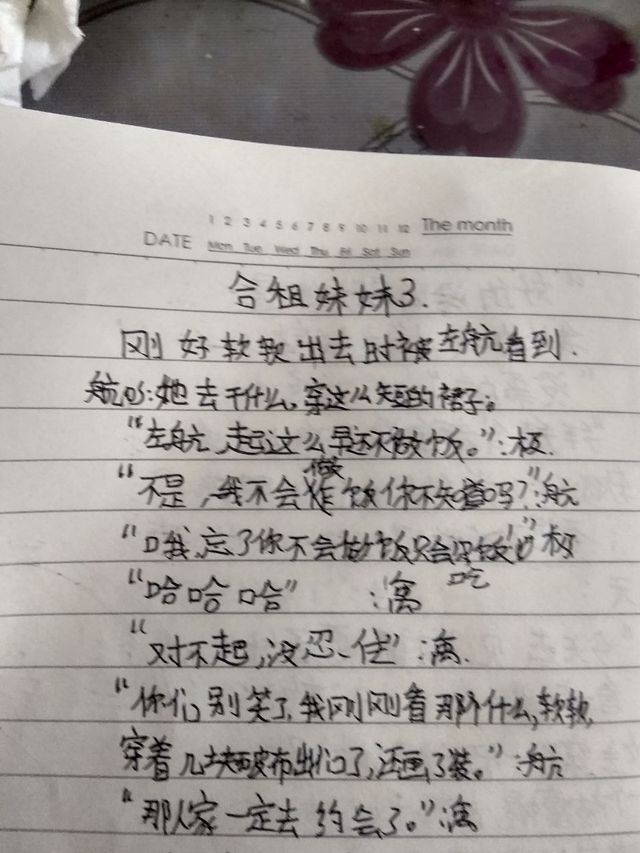 1 2 3 4 5 6 7 8 9 10 11 12 The month
DATE Mon Tue Wed Thu Fri Sat Sun
合租妹妹3.
刚好软软出去时被左航看到.
航os:她去干什么,穿这么短的裙子。
"左航,起这么早还不做饭。":极.
做
"不是,我不会饭你不知道吗?":航
"哦,忘了你不会做饭只会饭"极
吃
"哈哈哈":漓
"对不起,没忍住":漓.
"你们别笑了,我刚刚看那个什么,软软
穿着几块破布出们了,还画了装。":航
"那人家一定去约会了。":漓